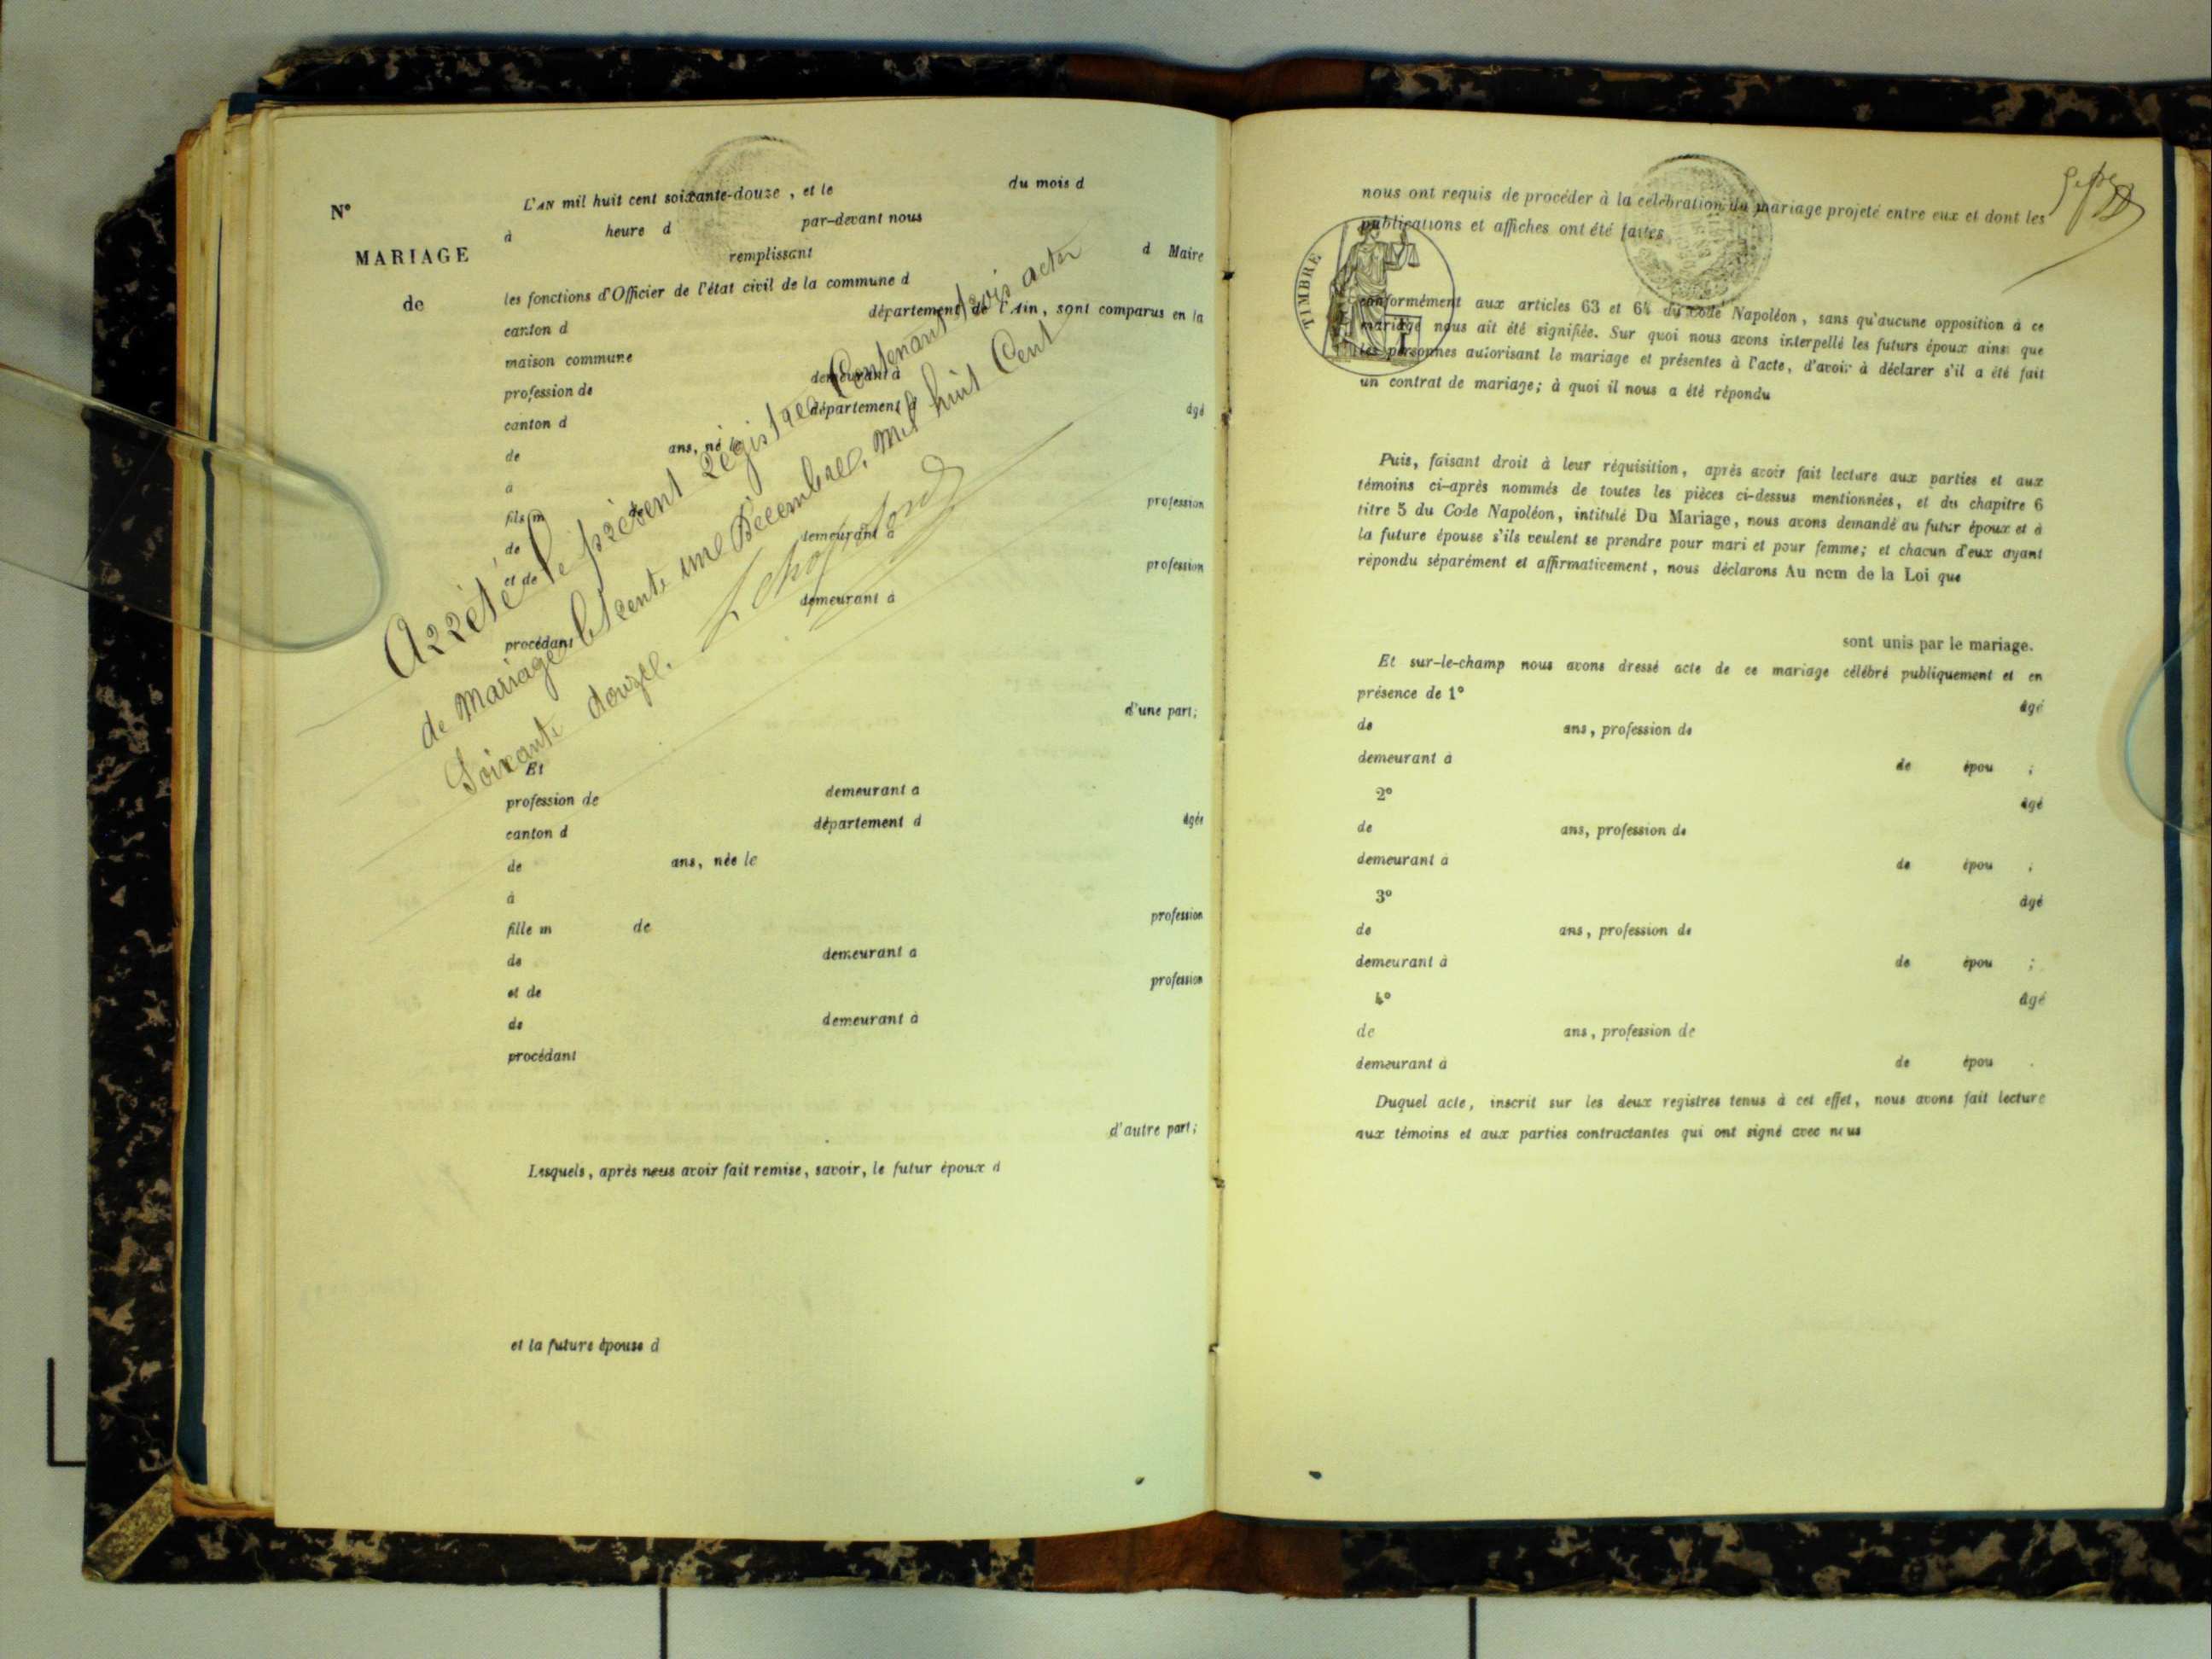 N°
MARIAGE
de
L'AN mil huit cent soixante-douze , et le du mois d
à heure d par-devant nous
remplissant d Maire
les fonctions d'Officier de l'état civil de la commune d
canton d département de l'Ain, sont comparus en la
maison commune
profession de demeurant à
canton d département d âgé
de ans, né le
à
fils m de profession
de demeurant à
et de profession
demeurant à
procédant
d'une part;
Arrêté le présent Régistre Contenant trois actes
de Mariage le trente une Décembre, mil huit Cent
Soixante douze.
Et
profession de demeurant à
canton d département d âgée
de ans, née le
à
fille m de profession
de demeurant à
et de profession
de demeurant à
procédant
d'autre part;
Lesquels, après nous avoir fait remise, savoir, le futur époux d
et la future épouse d
nous ont requis de procéder à la célébration du mariage projeté entre eux et dont les
publications et affiches ont été faites
TIMBRE
conformément aux articles 63 et 64 du Code Napoléon, sans qu'aucune opposition à ce
mariage nous ait été signifiée. Sur quoi nous avons interpellé les futurs époux ainsi que
les personnes autorisant le mariage et présentes à l'acte, d'avoir à déclarer s'il a été fait
un contrat de mariage; à quoi il nous a été répondu
Puis, faisant droit à leur réquisition, après avoir fait lecture aux parties et aux
témoins ci-après nommés de toutes les pièces ci-dessus mentionnées, et du chapitre 6
titre 5 du Code Napoléon, intitulé Du Mariage, nous avons demandé au futur époux et à
la future épouse s'ils veulent se prendre pour mari et pour femme; et chacun d'eux ayant
répondu séparément et affirmativement, nous déclarons Au nom de la Loi que
sont unis par le mariage.
Et sur-le-champ nous avons dressé acte de ce mariage célébré publiquement et en
présence de 1° âgé
de ans, profession de
demeurant à de épou ;
2° âgé
de ans, profession de
demeurant à de épou ;
3° âgé
de ans, profession de
demeurant à de épou ;
4° âgé
de ans, profession de
demeurant à de épou .
Duquel acte, inscrit sur les deux registres tenus à cet effet, nous avons fait lecture
aux témoins et aux parties contractantes qui ont signé avec nous